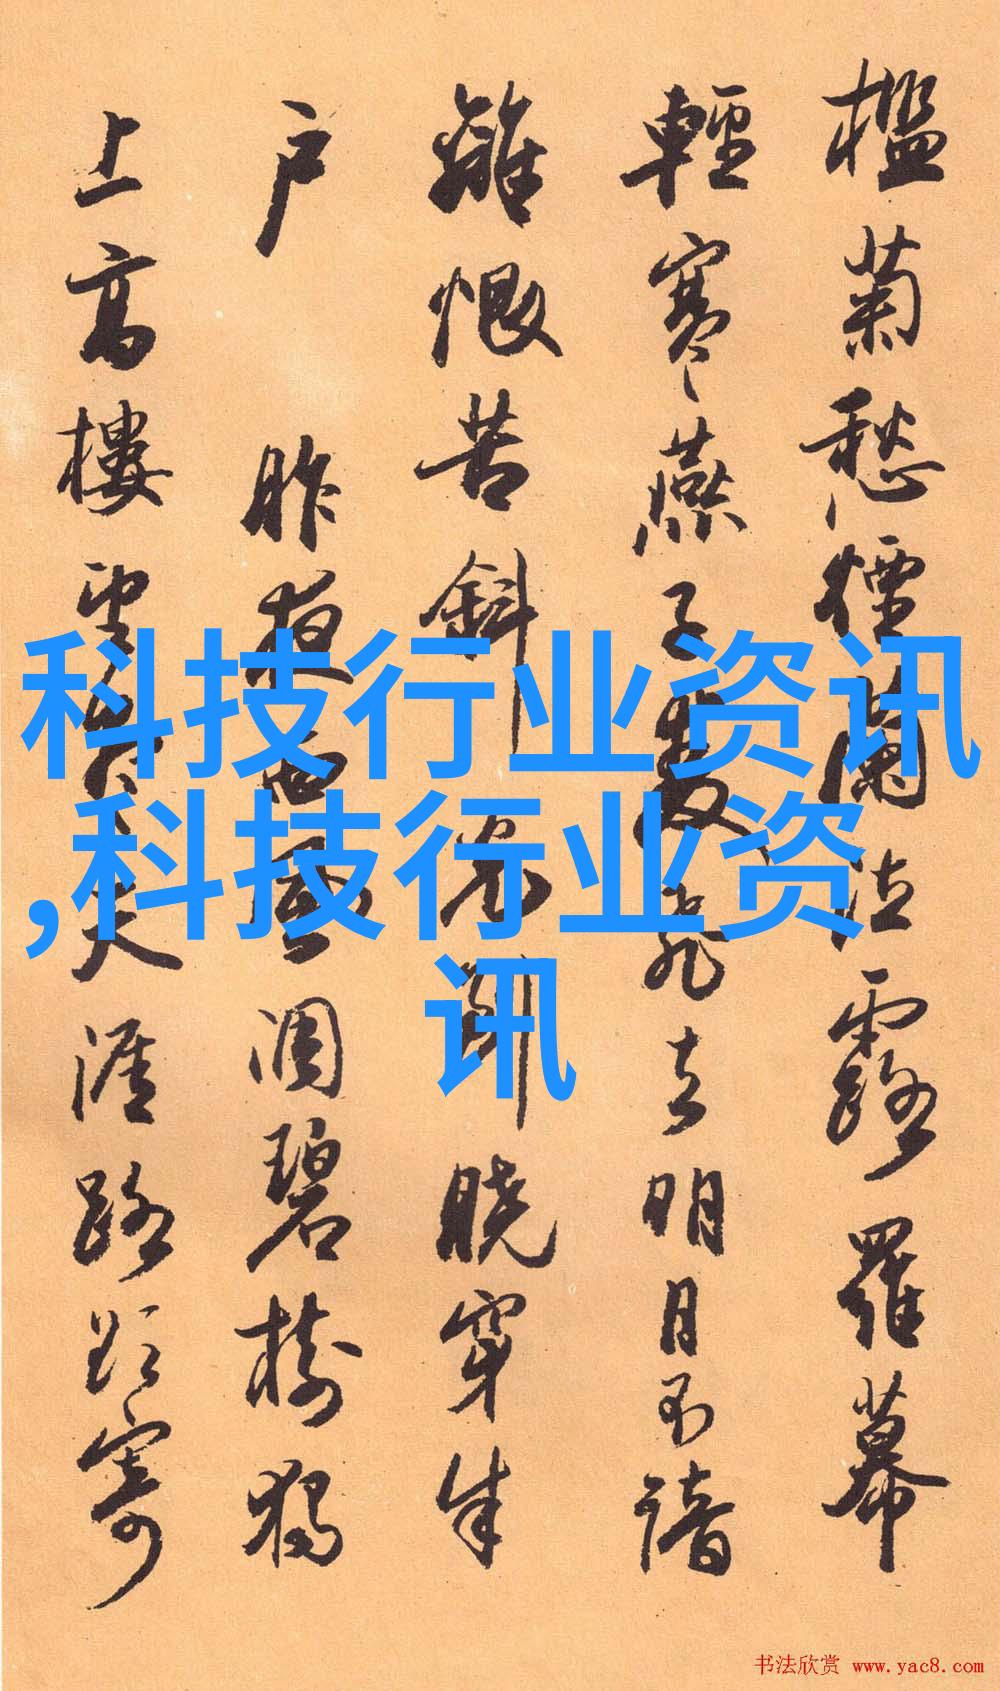 槛菊愁烟兰泣露罗幕
輕寒燕子雙飛去明月不諳
離恨苦斜光到曉穿朱
户 昨夜西風凋碧樹獨
上高樓望盡天涯路欲寄
科技行业资讯
,科技行业资
讯
书法欣赏 www.yac8.com